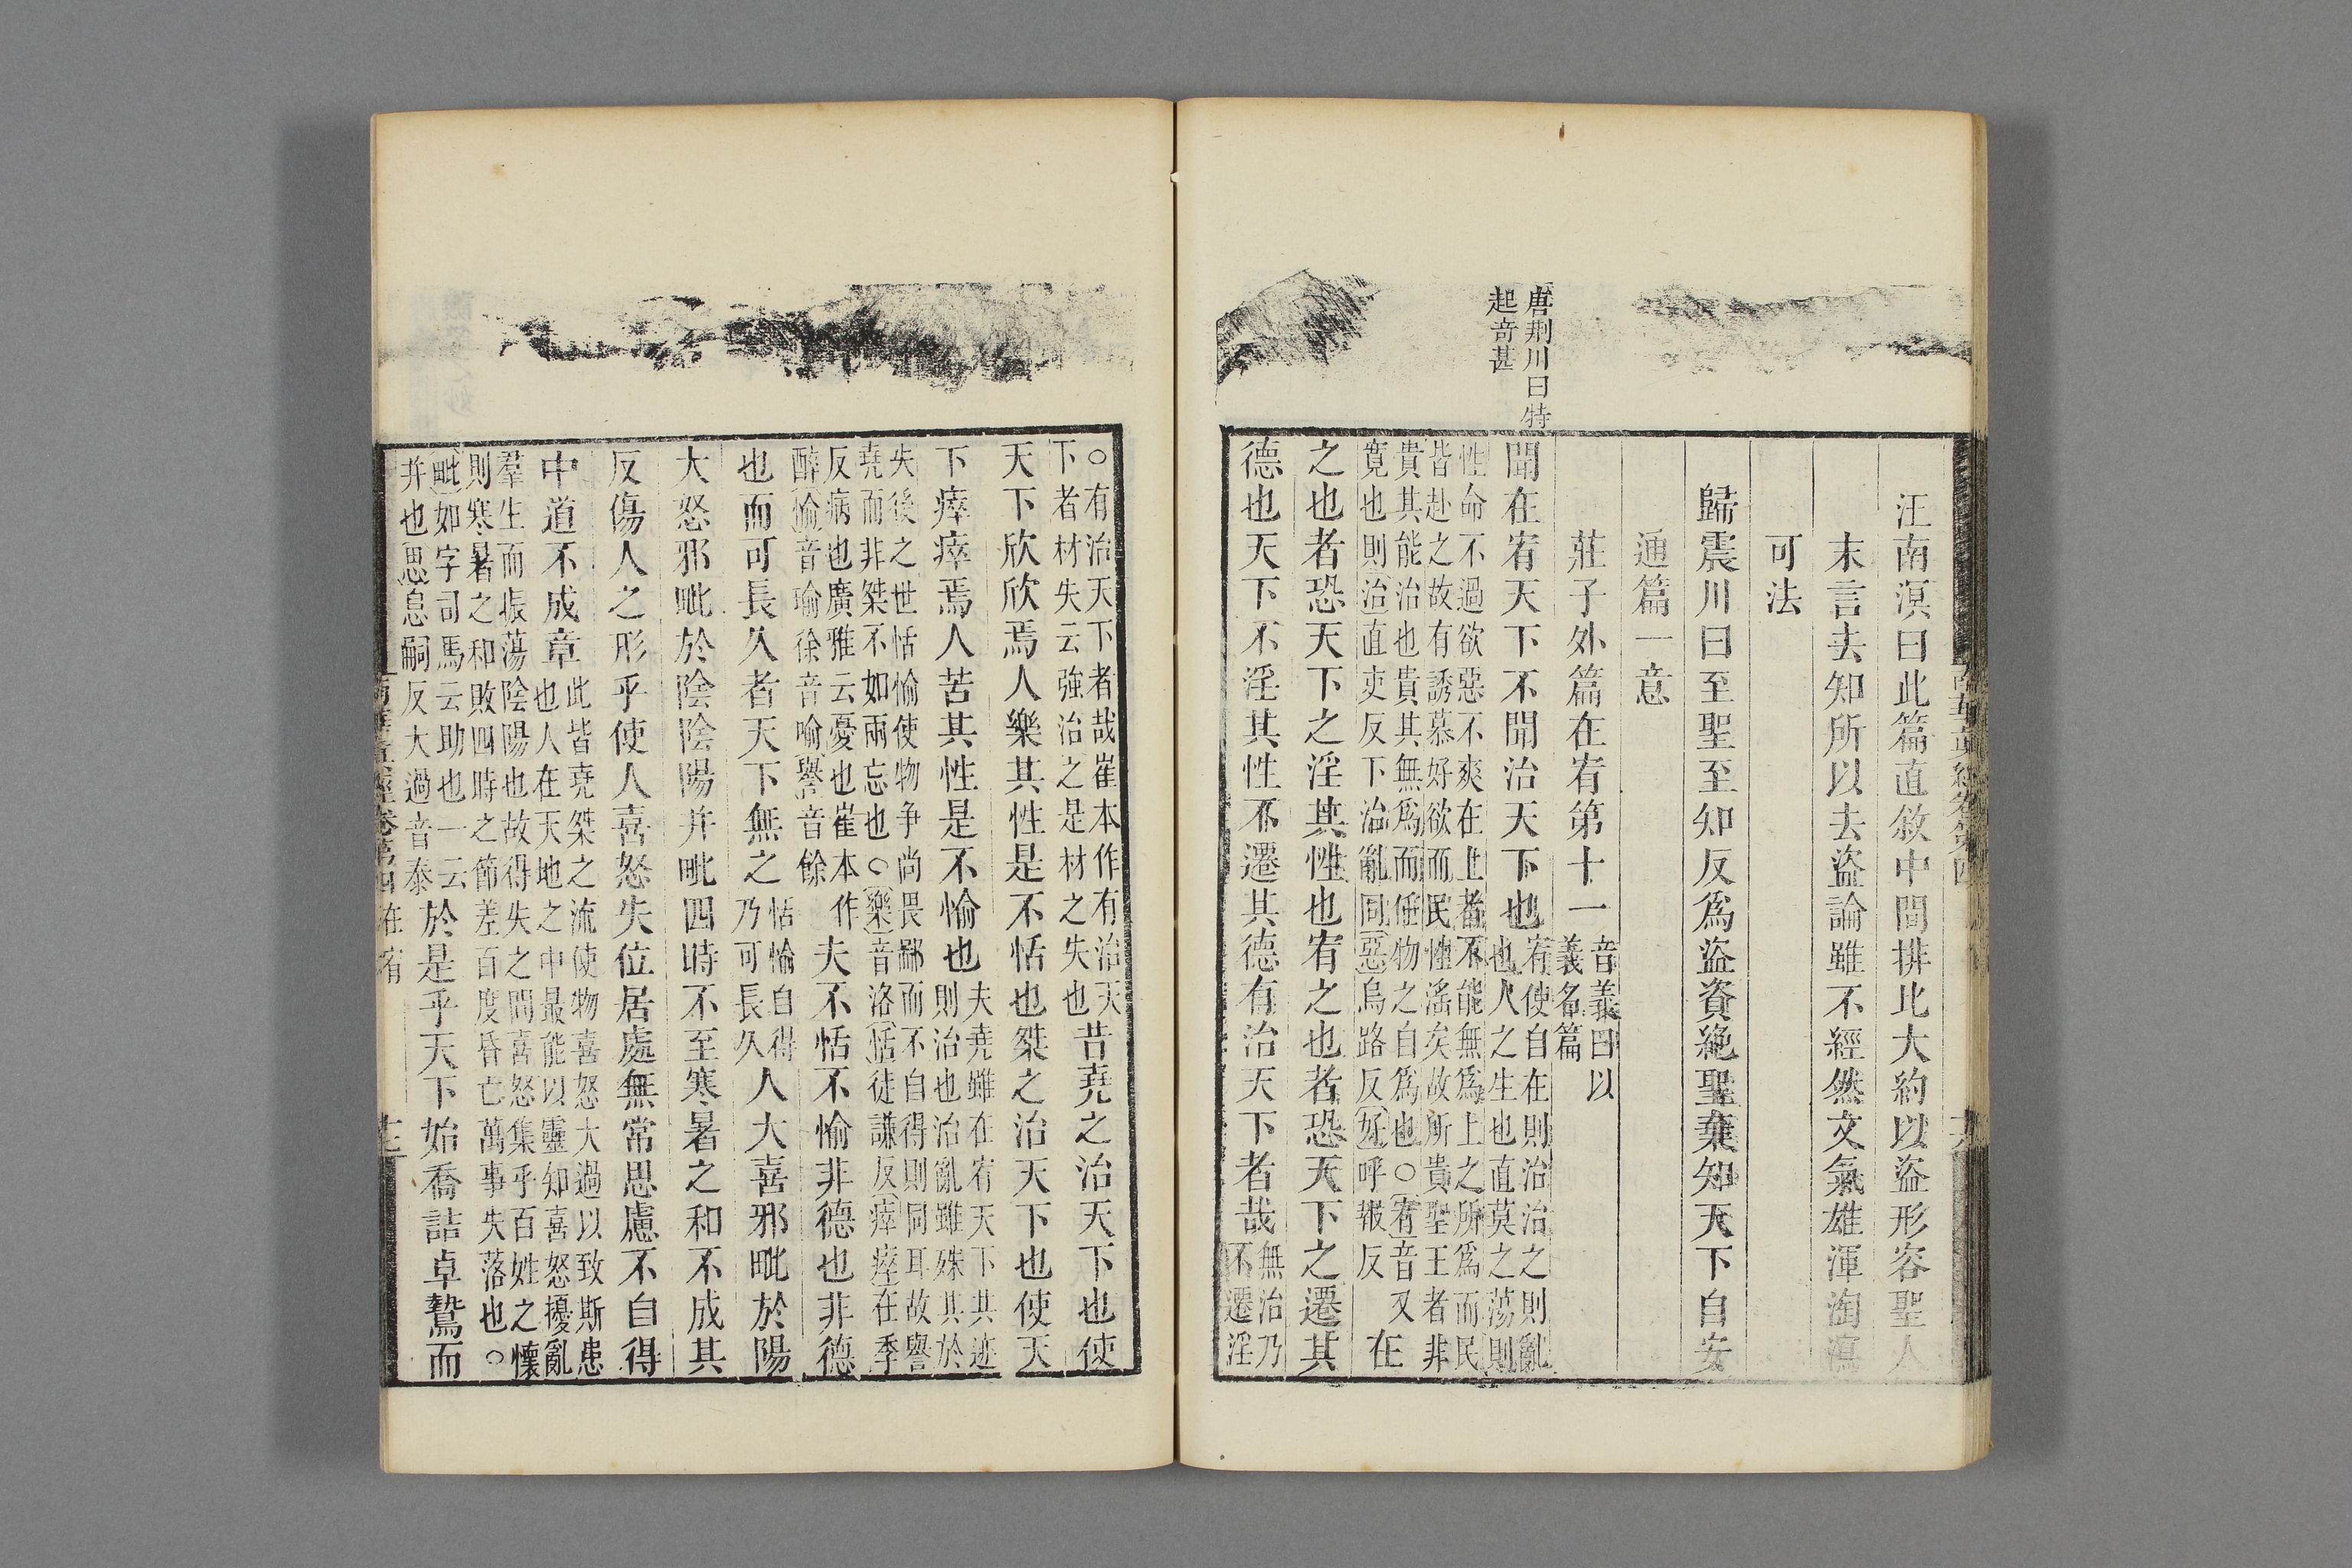 唐荆川曰特
起奇甚
汪南溟曰此篇直敘中間排比大約以盜形容聖人
末言去知所以去盜論雖不經然文氣雄渾淘瀉
可法
歸震川曰至聖至知反爲盜資絶聖棄知天下自安
通篇一意
莊子外篇在宥第十一
音義曰以
義名篇
聞在宥天下不聞治天下也
宥使自在則治治之則亂
也人之生也直莫之蕩則
性命不過欲惡不爽在上者不能無爲上之所爲而民
皆赴之故有誘慕好欲而民性滛矣故所貴聖王者非
貴其能治也貴其無爲而任物之自爲也○宥音又
寛也則治直吏反下治亂同惡烏路反好呼報反
在
之也者恐天下之淫其性也宥之也者恐天下之遷其
德也天下不淫其性不遷其德有治天下者哉
無治乃
不遷淫
○有治天下者哉崔本作有治天
下者材失云強治之是材之失也
昔堯之治天下也使
天下欣欣焉人樂其性是不恬也桀之治天下也使天
下瘁瘁焉人苦其性是不愉也
夫堯雖在宥天下其迹
則治也治亂雖殊其於
失後之世恬愉使物争尚畏鄙而不自得則同耳故譽
堯而非桀不如兩忘也○樂音洛恬徒謙反瘁瘁在季
反病也廣雅云憂也崔本作
醉愉音瑜徐音喻譽音餘
夫不恬不愉非德也非德
也而可長久者天下無之
恬愉自得
乃可長久
人大喜邪毗於陽
大怒邪毗於陰陰陽并毗四時不至寒暑之和不成其
反傷人之形乎使人喜怒失位居處無常思慮不自得
中道不成章
此皆堯桀之流使物喜怒大過以致斯患
也人在天地之中最能以靈知喜怒擾亂
羣生而振蕩陰陽也故得失之間喜怒集乎百姓之懷
則寒暑之和敗四時之節差百度昏亡萬事失落也○
毗如字司馬云助也一云
并也思息嗣反大過音泰
於是乎天下始喬詰卓鷙而